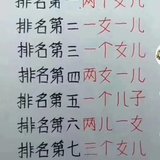 排名第一两个女儿
排名第二一女一儿
排名第三一个女儿
排名第四两女一儿
排名第五一个儿子
排名第六两儿一女
排名第七三个女儿